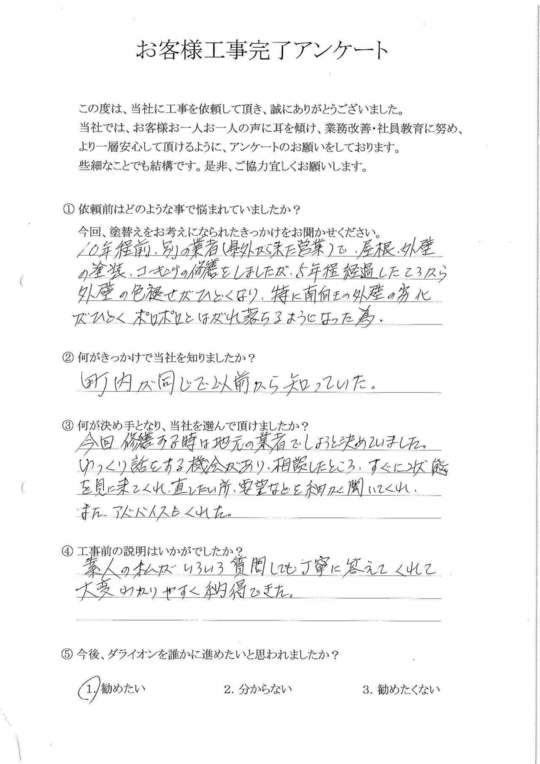 お客様工事完了アンケート
この度は、当社に工事を依頼して頂き、誠にありがとうございました。
当社では、お客様お一人お一人の声に耳を傾け、業務改善・社員教育に努め、
より一層安心して頂けるように、アンケートのお願いをしております。
些細なことでも結構です。是非、ご協力宜しくお願いします。
① 依頼前はどのような事で悩まれていましたか？
今回、塗替えをお考えになられたきっかけをお聞かせください。
10年程前、別の業者(県外から来た営業)で、屋根、外壁
の塗装、コーキングの修繕をしましたが、5年程経過したころから
外壁の色褪せがひどくなり、特に南向きの外壁の劣化
がひどく ボロボロとはがれ落ちるようになった為。
② 何がきっかけで当社を知りましたか？
町内が同じで以前から知っていた。
③ 何が決め手となり、当社を選んで頂けましたか？
今回 修繕する時は地元の業者でしようと決めていました。
ゆっくり話をする機会があり、相談したところ、すぐに状態
を見に来てくれ、直したい所、要望などを細かく聞いてくれ、
また、アドバイスもくれた。
④ 工事前の説明はいかがでしたか？
素人の私が いろいろ質問しても丁寧に答えてくれて
大変わかりやすく納得できた。
⑤ 今後、ダライオンを誰かに進めたいと思われましたか？
1. 勧めたい 2. 分からない 3. 勧めたくない